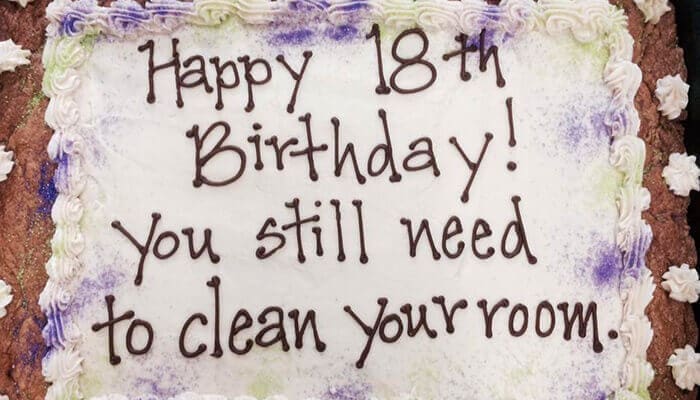 Happy 18th
Birthday!
you still need
to clean your room.